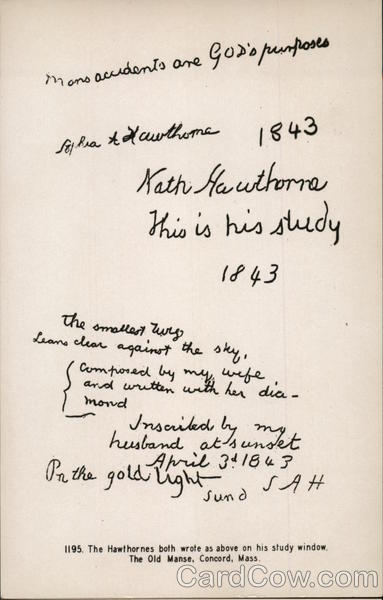 Mans accidents are GOD's purposes
Sophia A Hawthorne 1843
Nath Hawthorne
This is his study
1843
The smallest twig
Leans clear against the sky,
Composed by my wife
and written with her dia-
mond
Inscribed by my
husband at sunset
April 3d 1843
In the gold light
S A H
1195. The Hawthornes both wrote as above on his study window.
The Old Manse, Concord, Mass.
CardCow.com